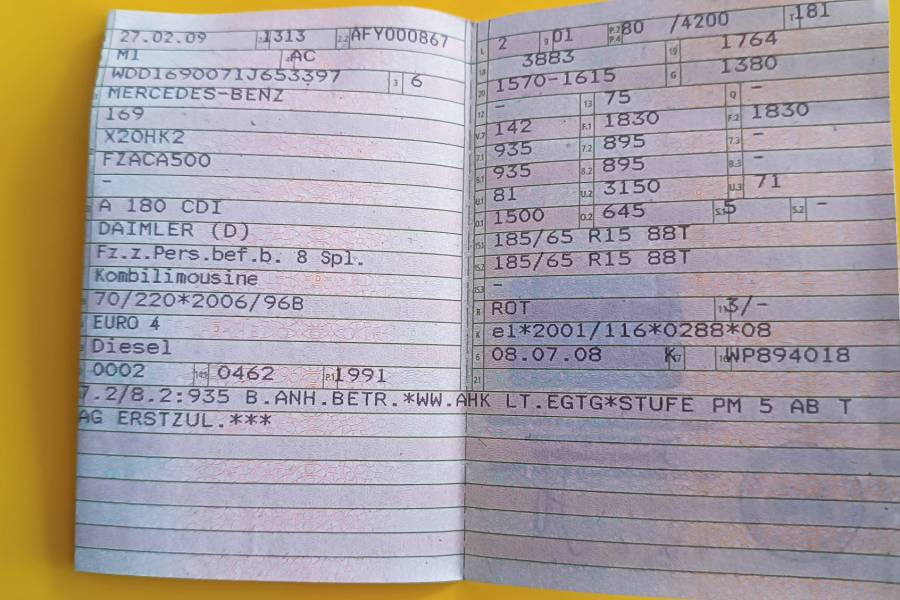 27.02.09 2.1 1313 2.2 AFY000867
M1 4 AC
WDD1690071J653397 3 6
MERCEDES-BENZ
169
X20HK2
FZACA500
–
A 180 CDI
DAIMLER (D)
Fz.z.Pers.bef.b. 8 Spl.
Kombilimousine
70/220*2006/96B
EURO 4
Diesel
0002 14.1 0462 P.1 1991
L 2 9 01 P.2 P.4 80 /4200 T 181
18 3883 19 1764
20 1570-1615 G 1380
12 – 13 75 Q –
V.7 142 F.1 1830 F.2 1830
7.1 935 7.2 895 7.3 –
8.1 935 8.2 895 8.3 –
U.1 81 U.2 3150 U.3 71
O.1 1500 O.2 645 S.1 5 S.2 –
15.1 185/65 R15 88T
15.2 185/65 R15 88T
15.3 –
R ROT 11 3/–
K e1*2001/116*0288*08
6 08.07.08 17 K 16 WP894018
21
7.2/8.2:935 B.ANH.BETR.*WW.AHK LT.EGTG*STUFE PM 5 AB T
AG ERSTZUL.***